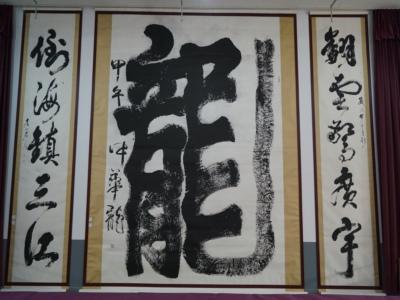 翻雲驚廣宇
龍
甲午中華龍
倒海鎮三江